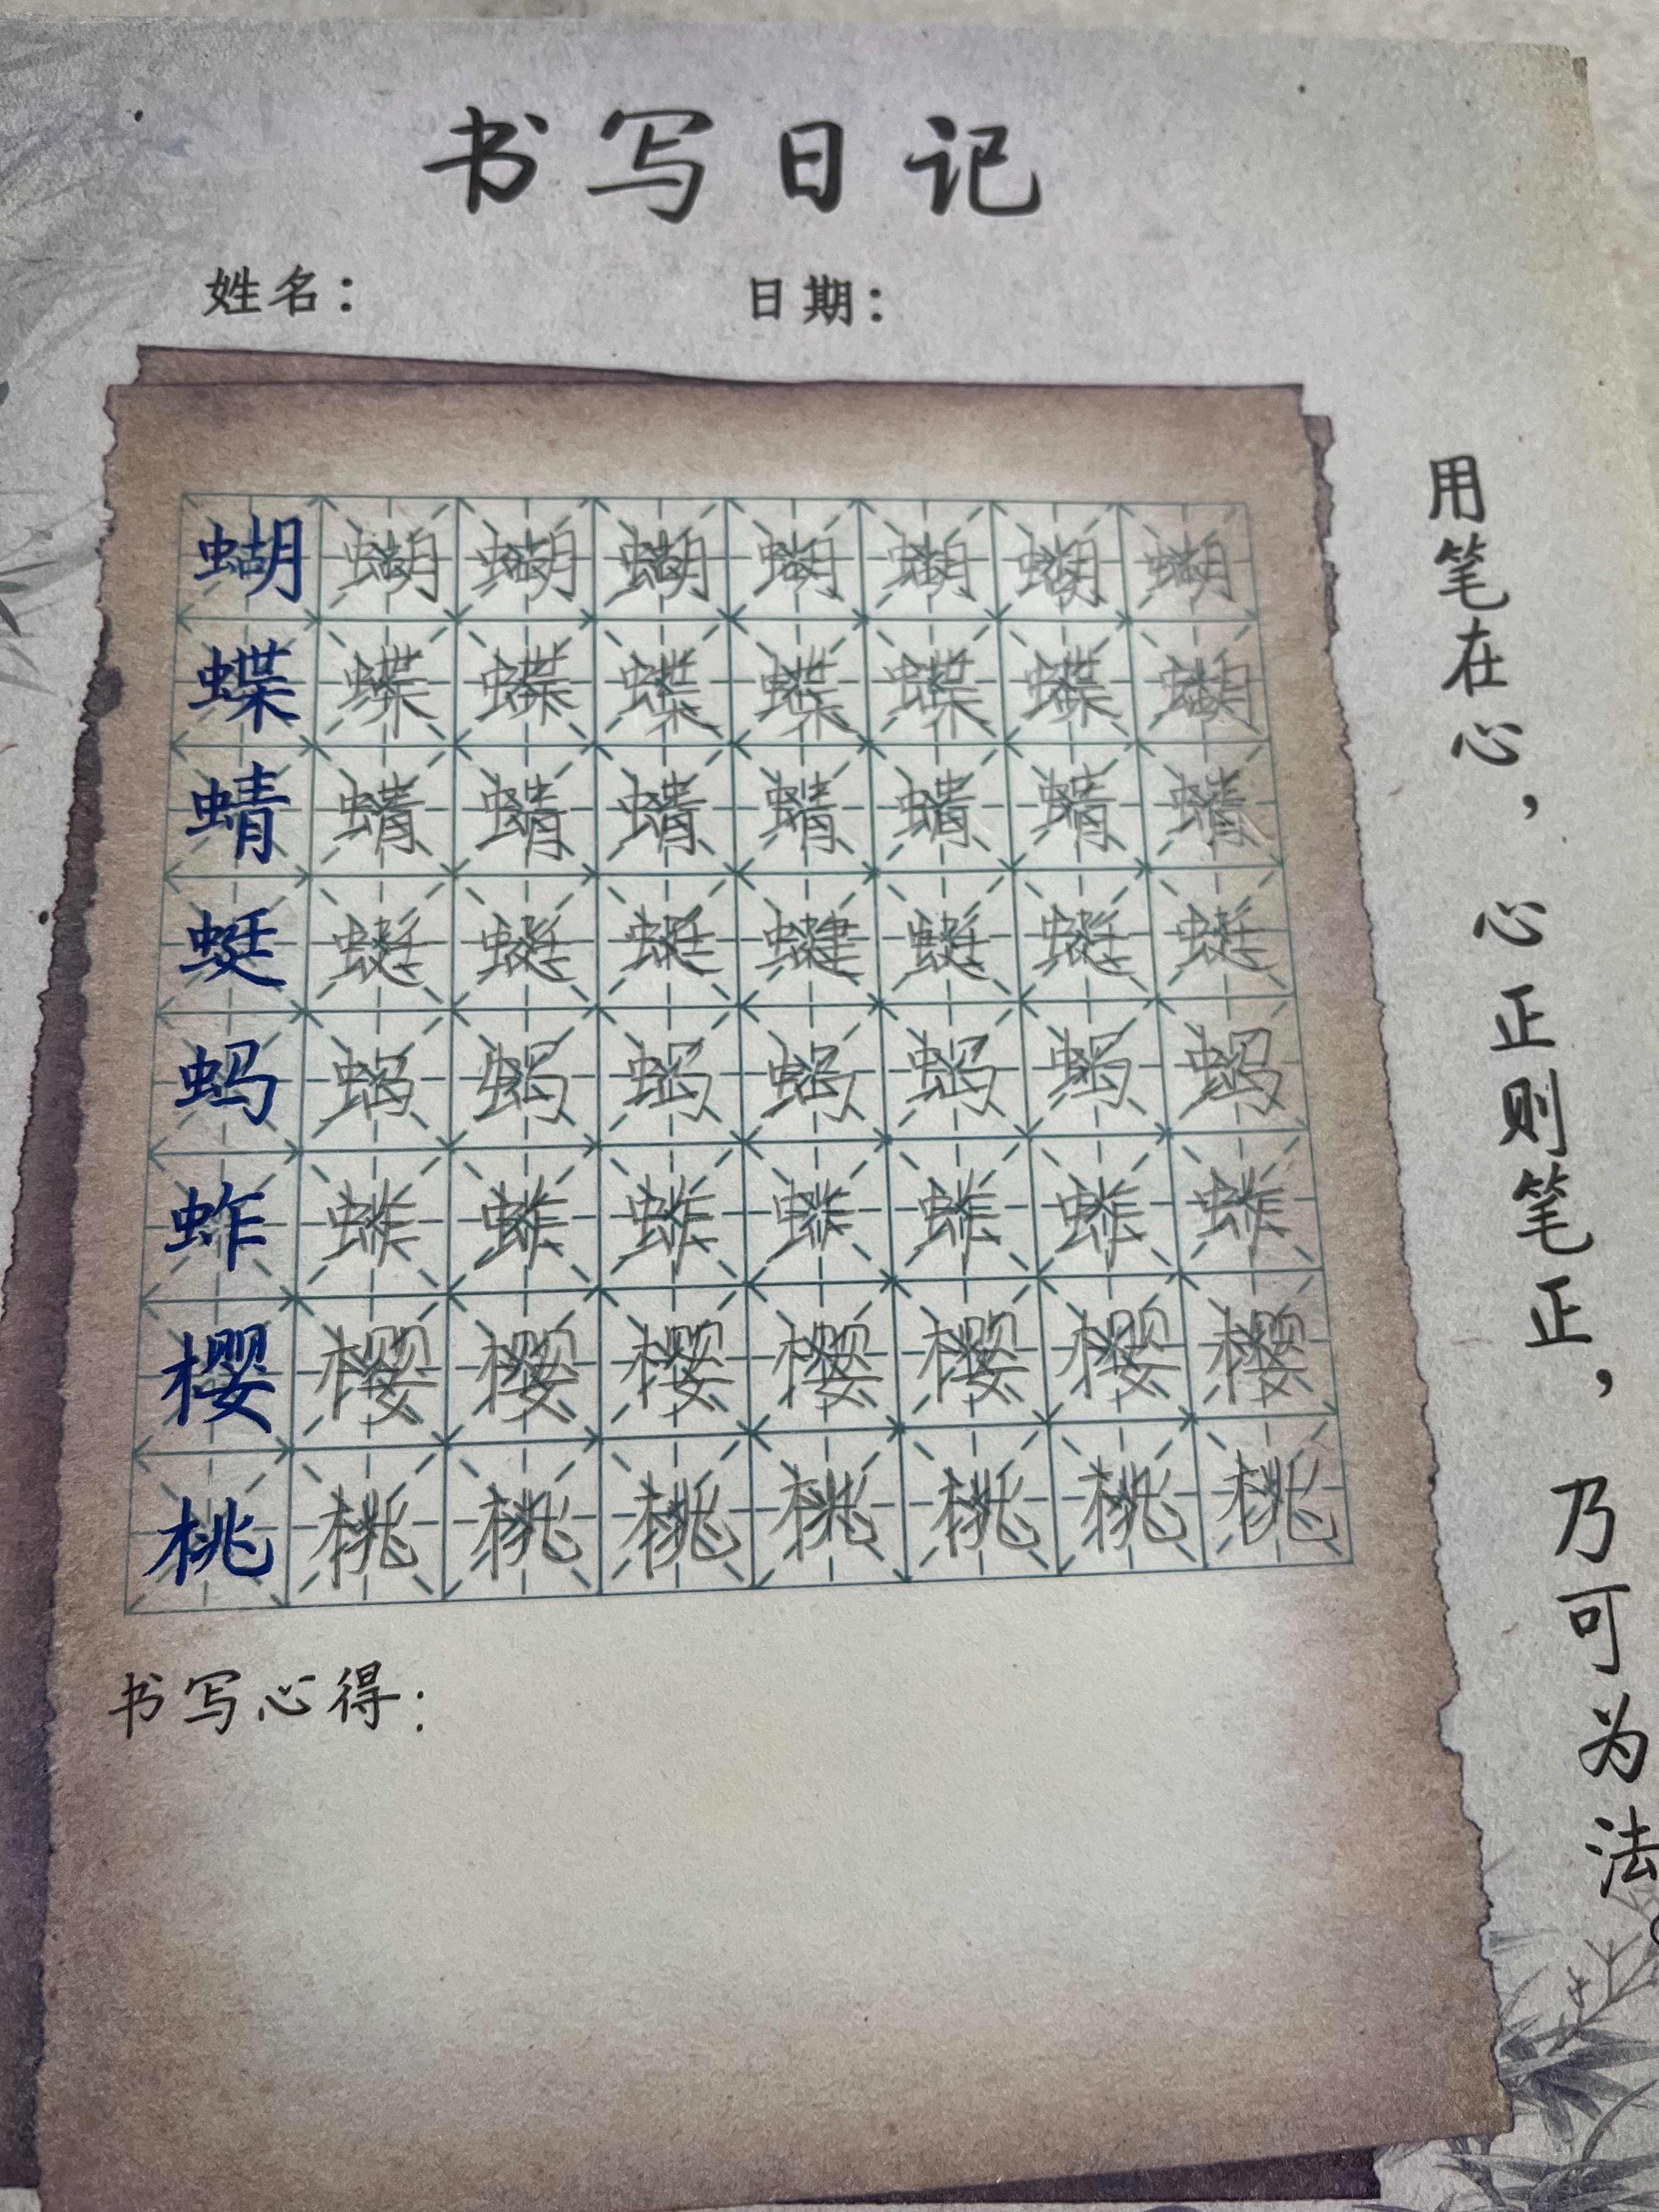 书写日记
姓名： 日期：
蝴蝴蝴蝴蝴蝴蝴蝴
蝶蝶蝶蝶蝶蝶蝶蝴
蜻蜻蜻蜻蜻蜻蜻蜻
蜓蜓蜓蜓蜓蜓蜓
蚂蚂蚂蚂蚂蚂蚂蚂
蚱蚱蚱蚱蚱蚱蚱蚱
樱樱樱樱樱樱樱樱
桃桃桃桃桃桃桃桃
书写心得：
用笔在心，心正则笔正，乃可为法。